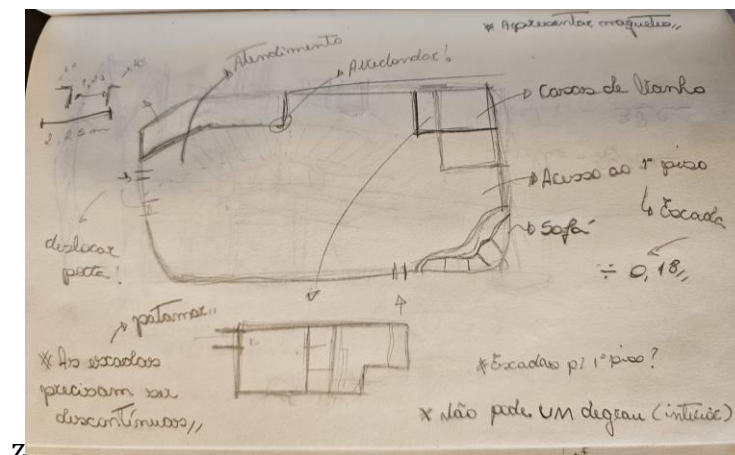 * Apresentar maquetes,,
Atendimento
Arredondar!
Casas de banho
2,25m
Acesso ao 1º piso
↳ Escada
Sofá
÷ 0,18,,
deslocar
porta!
patamar,,
* As escadas
precisam ser
descontínuas,,
* Escadas p/ 1º piso?
* Não pode UM degrau (interior)
Z